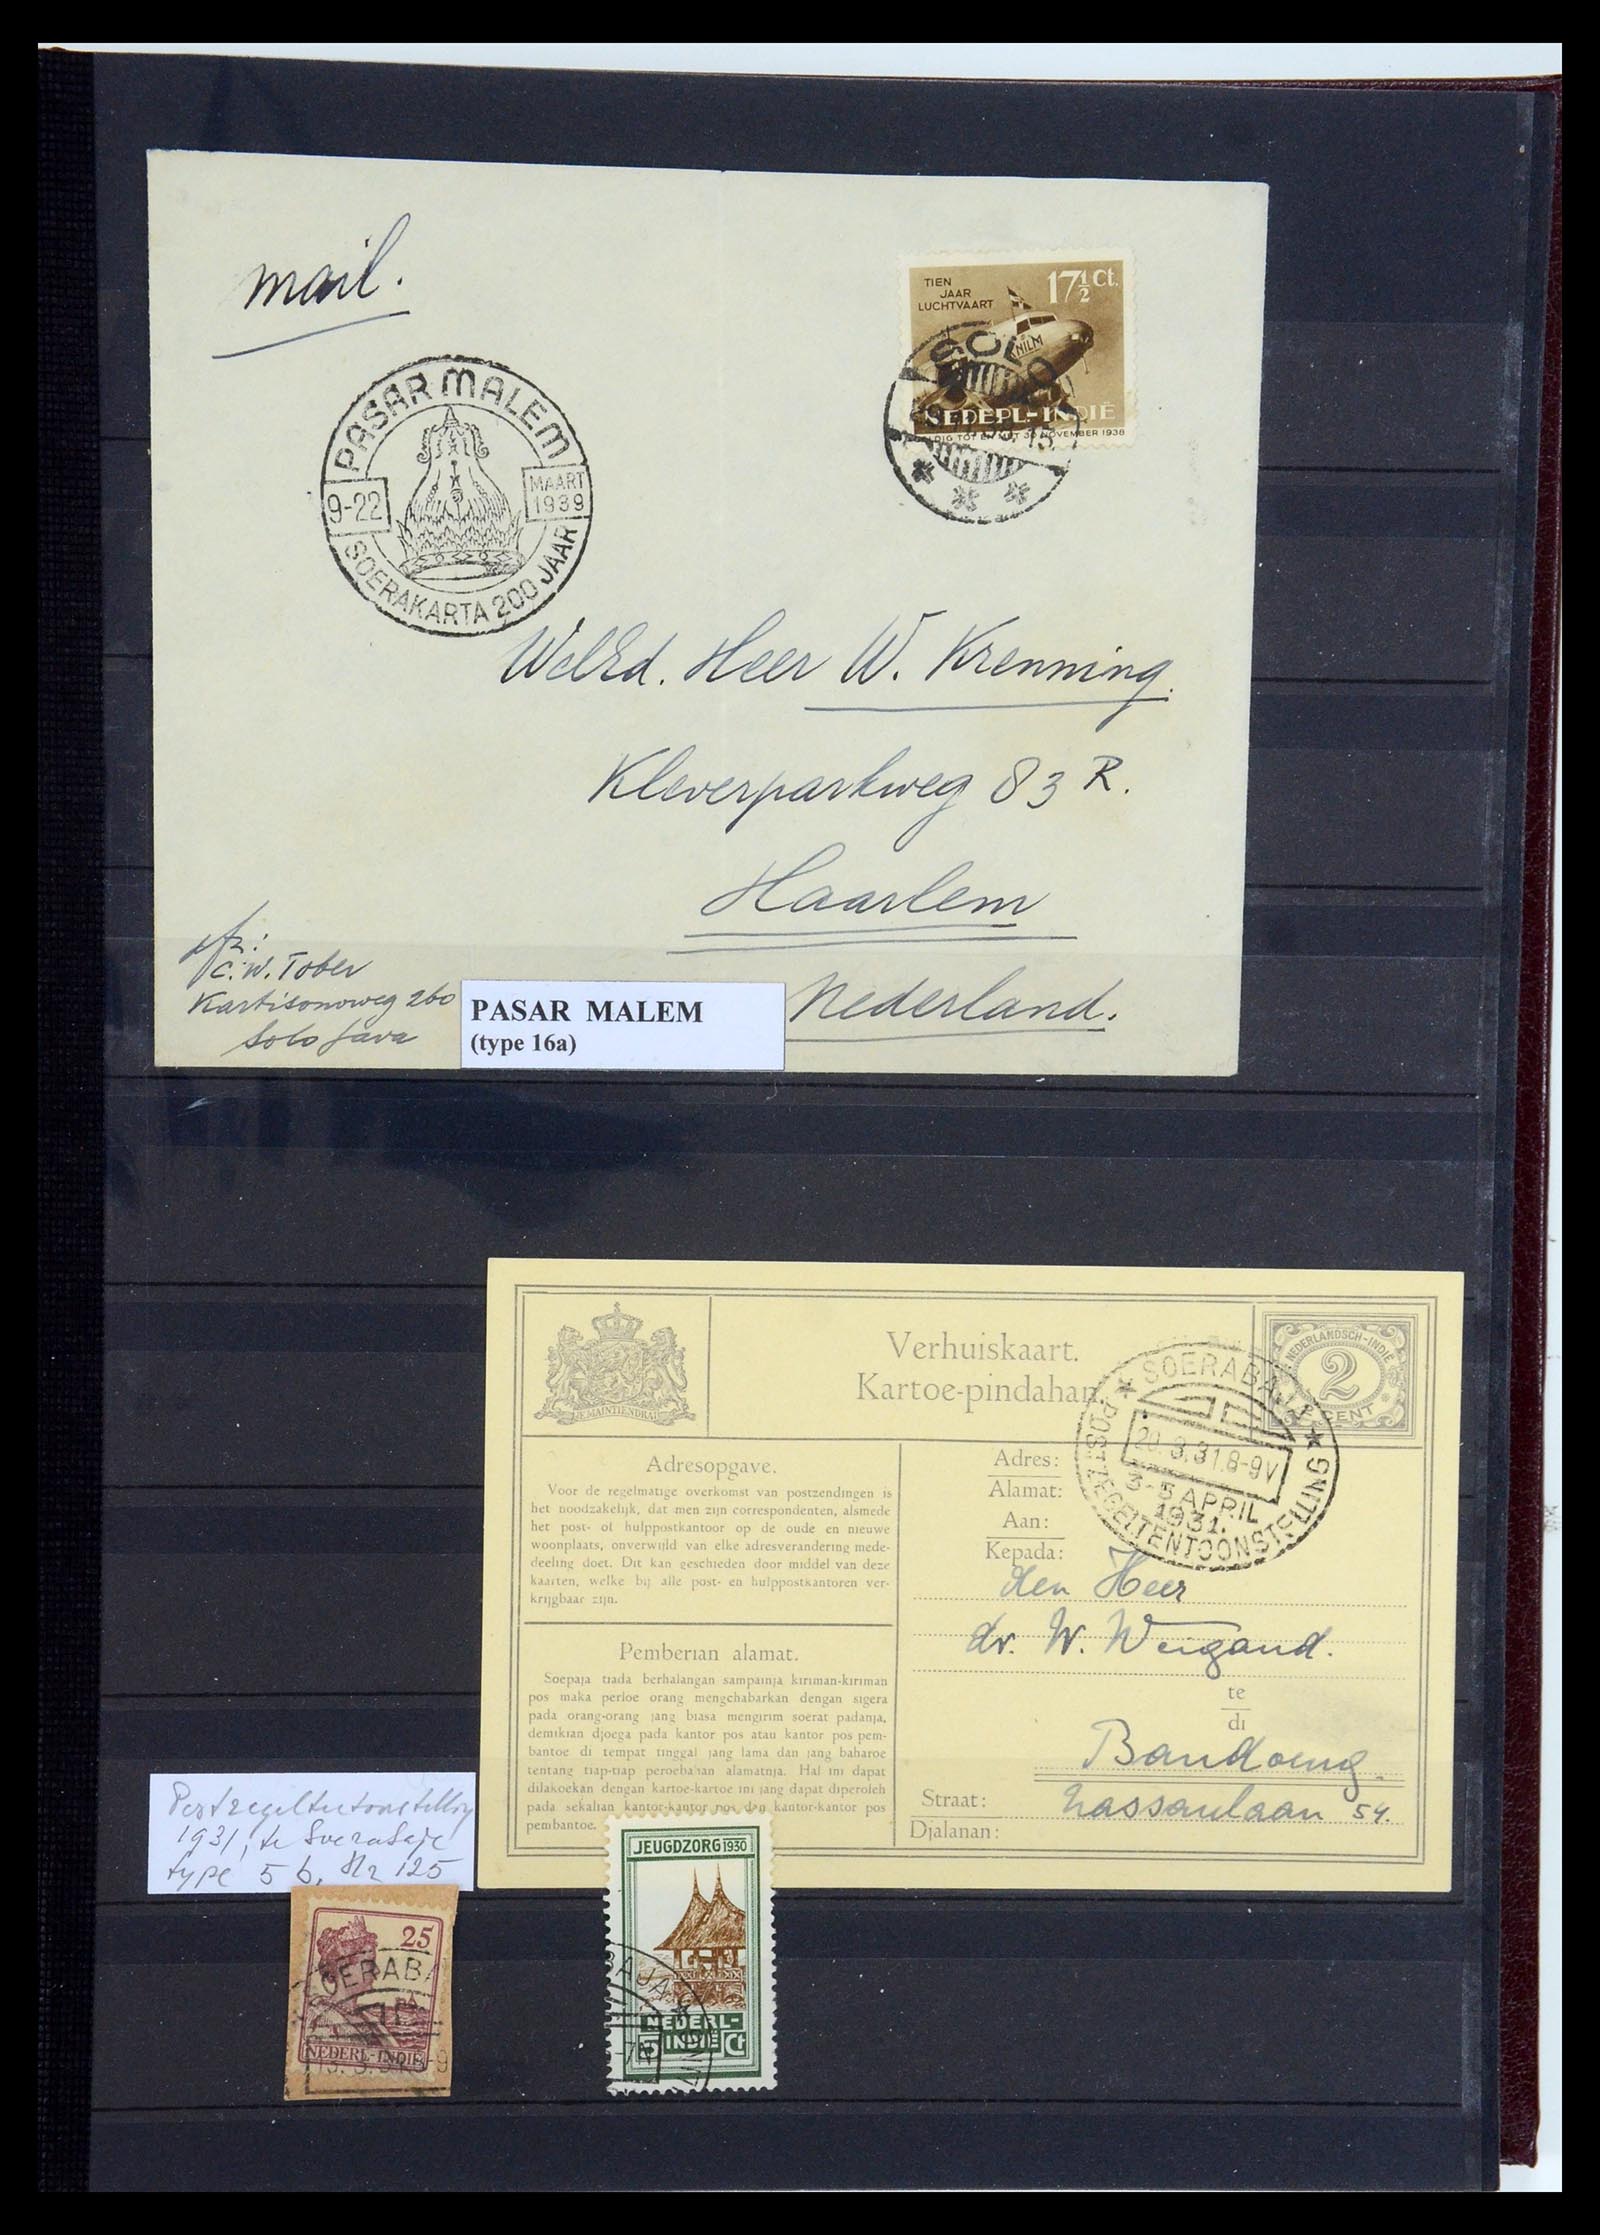 mail.
TIEN
JAAR
LUCHTVAART
17½ Ct.
KNILM
NEDERL-INDIË
GELDIG TOT EN MET 30 NOVEMBER 1938
SOLO
PASAR MALEM
9-22
MAART
1939
SOERAKARTA 200 JAAR
WelEd. Heer W. Krenning
Kleverparkweg 83 R.
Haarlem
Nederland.
afz:
C. W. Tober
Kartisonoweg 260
Solo Java
PASAR MALEM
(type 16a)
JE MAINTIENDRAI
Verhuiskaart.
Kartoe-pindahan.
NEDERLANDSCH-INDIË
2
CENT
SOERABAJA
20.3.31.8-9V
3-5 APRIL
1931.
POSTZEGELTENTOONSTELLING
Adresopgave.
Voor de regelmatige overkomst van postzendingen is
het noodzakelijk, dat men zijn correspondenten, alsmede
het post- of hulppostkantoor op de oude en nieuwe
woonplaats, onverwijld van elke adresverandering mede-
deeling doet. Dit kan geschieden door middel van deze
kaarten, welke bij alle post- en hulppostkantoren ver-
krijgbaar zijn.
Pemberian alamat.
Soepaja tiada berhalangan sampainja kiriman-kiriman
pos maka perloe orang mengchabarkan dengan sigera
pada orang-orang jang biasa mengirim soerat padanja,
demikian djoega pada kantor pos atau kantor pos pem-
bantoe di tempat tinggal jang lama dan jang baharoe
tentang tiap-tiap peroebahan alamatnja. Hal ini dapat
dilakoekan dengan kartoe-kartoe ini jang dapat diperoleh
pada sekalian kantor-kantor pos dan kantor-kantor pos
pembantoe.
Adres:
Alamat:
Aan:
Kepada:
den Heer
dr. W. Weigand.
te
di
Bandoeng.
Straat:
Djalanan:
Nassaulaan 54.
Postzegeltentoonstelling
1931, te Soerabaja
type 5 b, Nr 125
25
OERABA
NEDERL-INDIË
JEUGDZORG 1930
BAJA
NEDERL-
INDIË
5 Ct